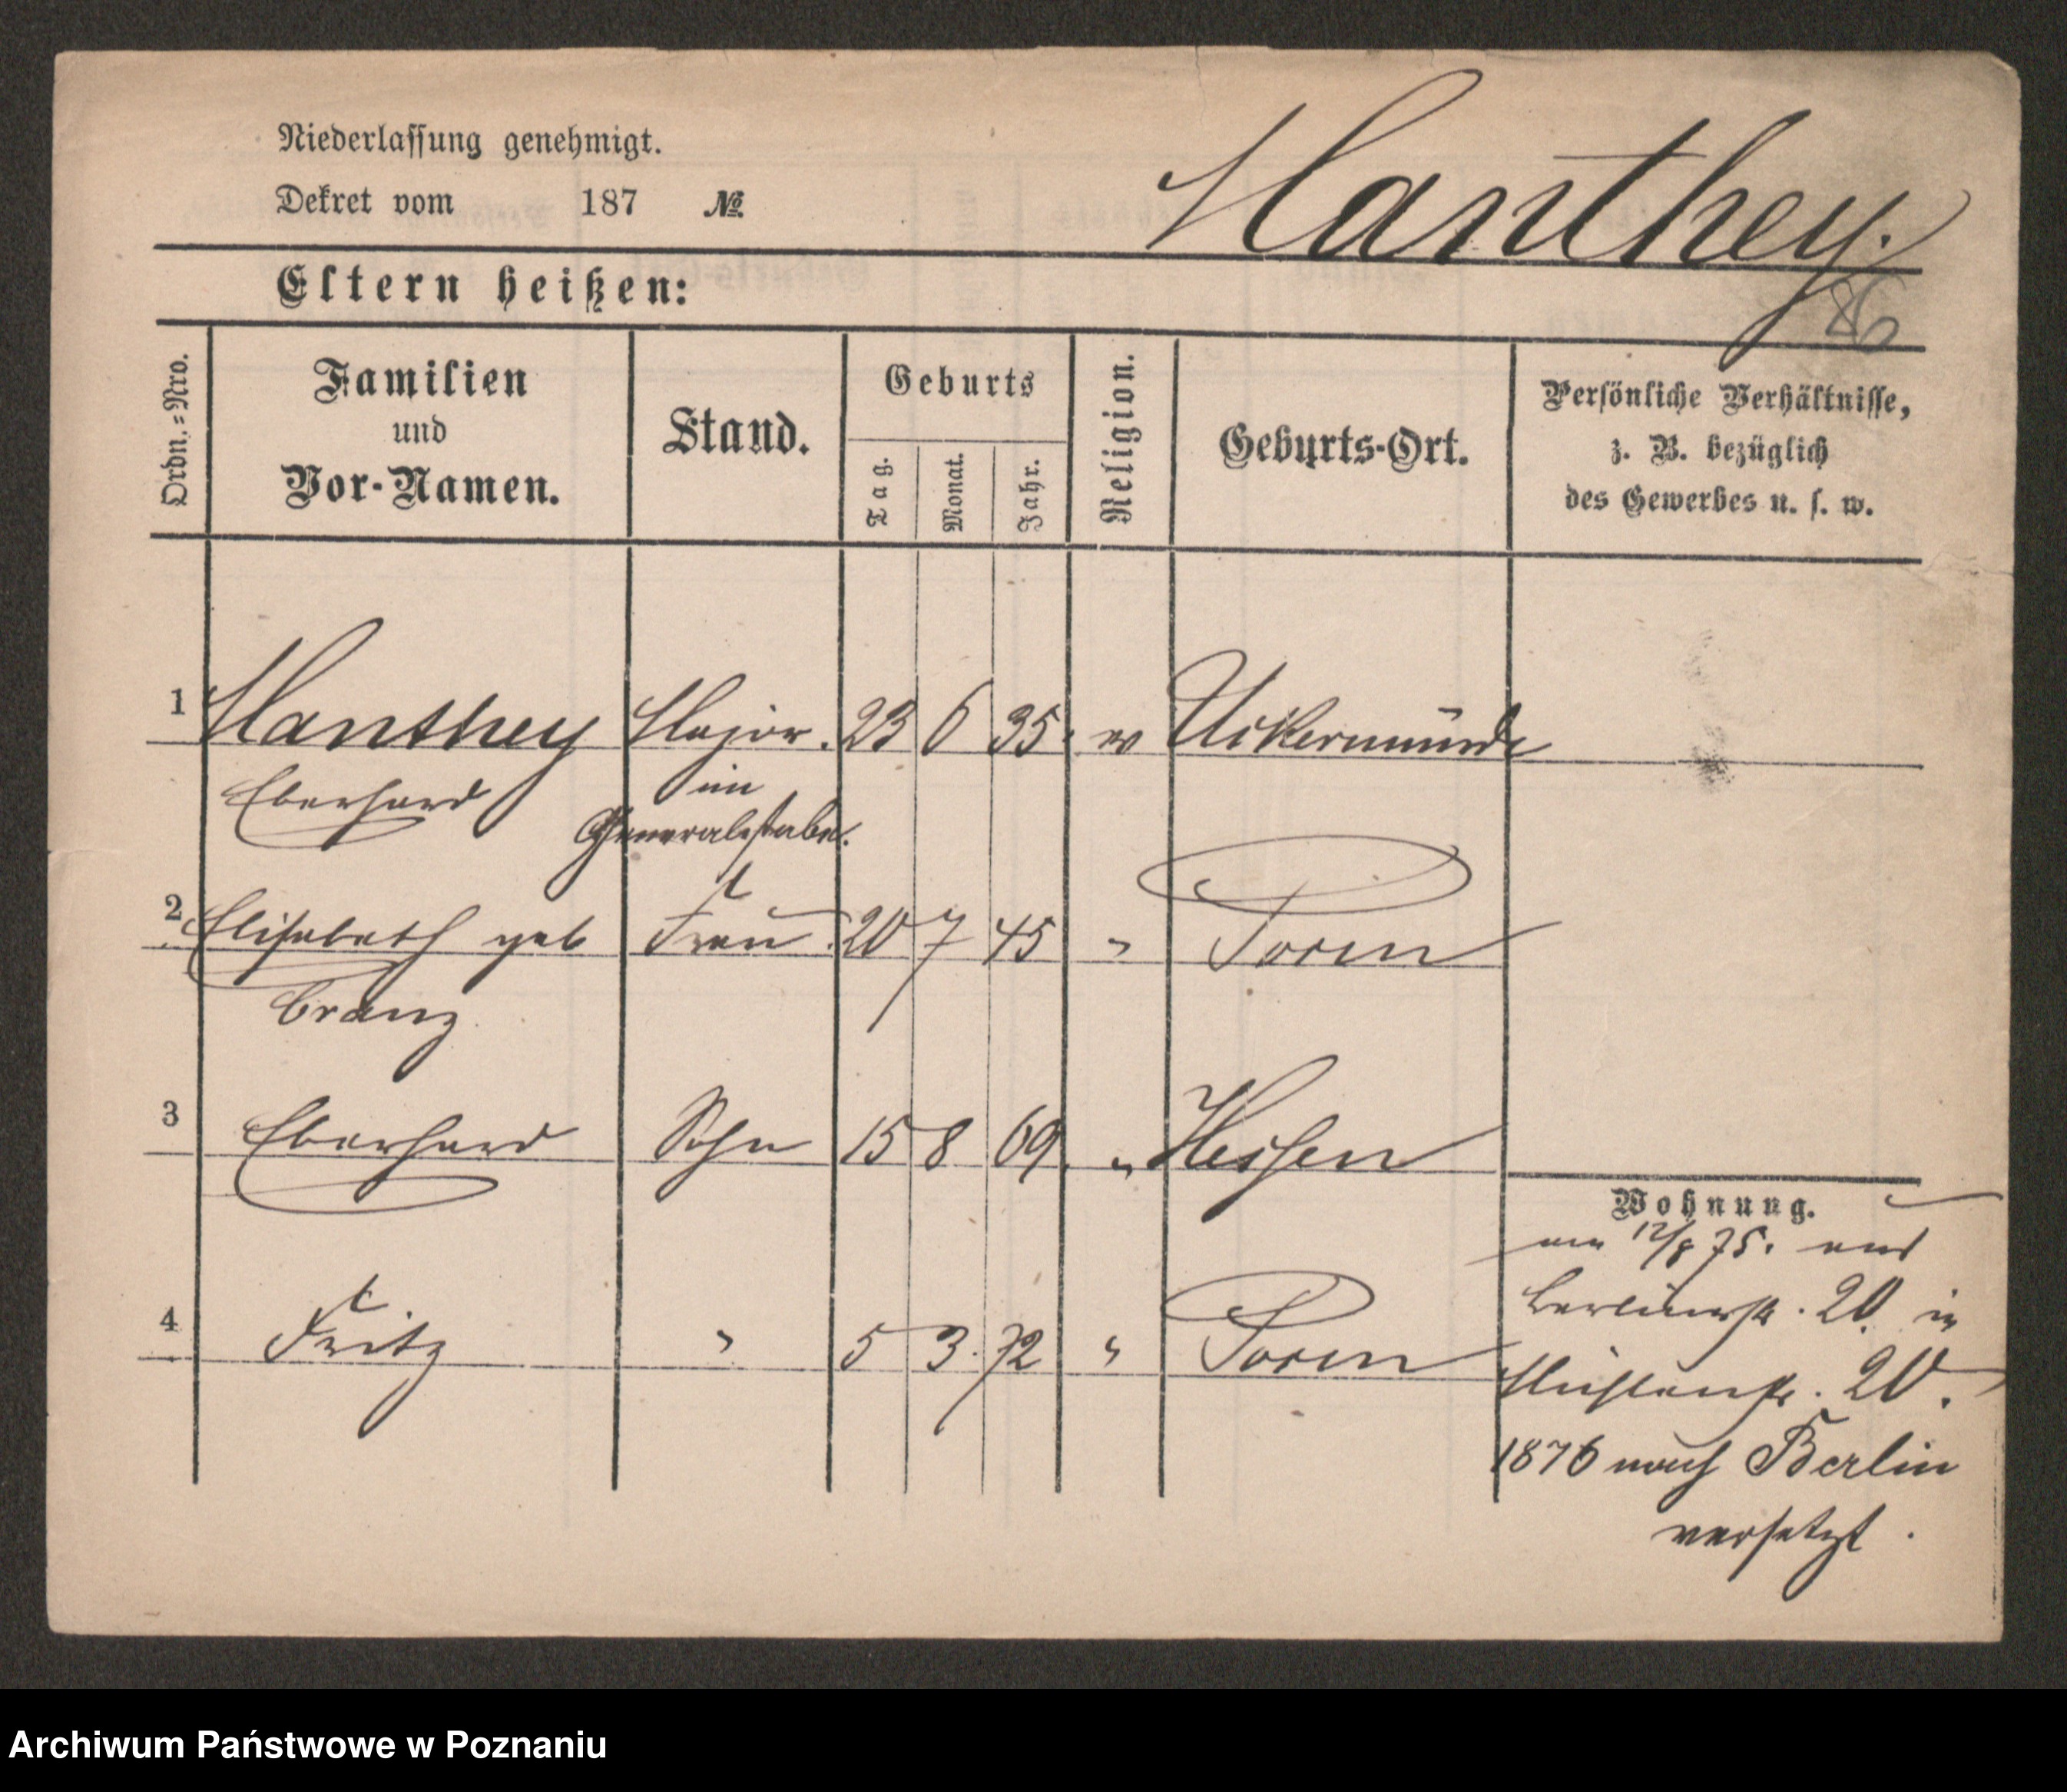 Niederlassung genehmigt.
Dekret vom 187 №
Manthey.
86
Eltern heißen:
Ordn.-Nro.
Familien und Vor-Namen.
Stand.
Geburts
Tag.
Monat.
Jahr.
Religion.
Geburts-Ort.
Persönliche Verhältnisse,
z. B. bezüglich
des Gewerbes u. s. w.
1 Manthey Major. 23 6 35. ev Uckermünde
Eberhard im
Generalstabe.
2 Elisabeth geb Frau. 20 7 45 "
Cranz
3 Eberhard Sohn 15 8 69. " Hessen
4 Fritz " 5 3. 72 "
Wohnung.
am 12/8 75. aus
Berlinerstr. 20 in
Mühlenstr. 20.
1876 nach Berlin
versetzt.
Archiwum Państwowe w Poznaniu